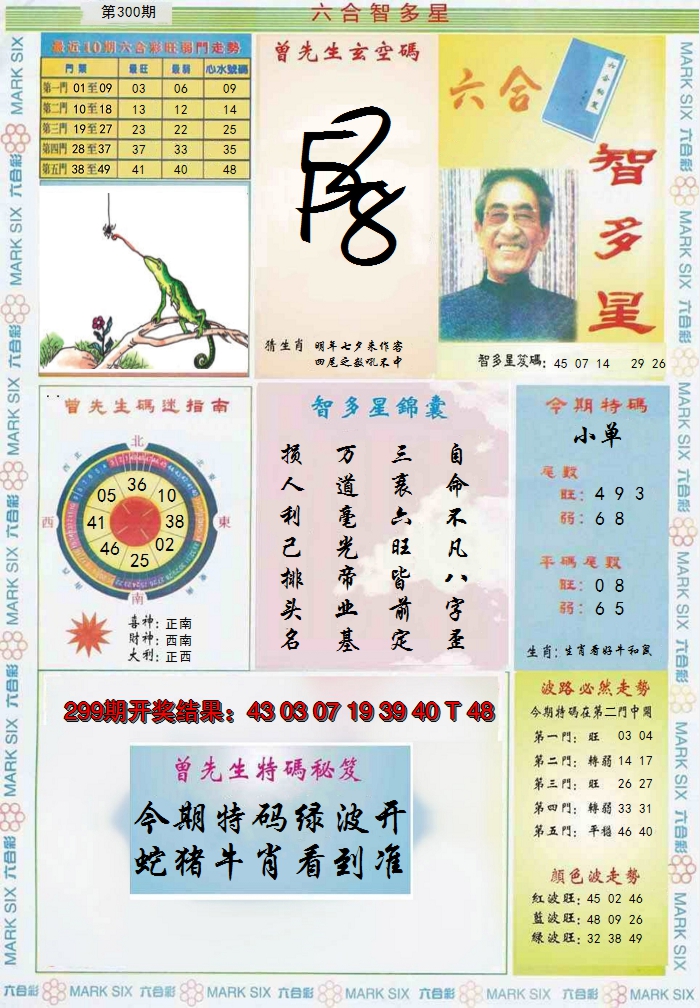 第300期
六合智多星
最近10期六合彩旺弱門走勢
門類 最旺 最弱 心水號碼
第一門 01至09 03 06 09
第二門 10至18 13 12 14
第三門 19至27 23 22 25
第四門 28至37 37 33 35
第五門 38至49 41 40 48
曾先生玄空碼
猜生肖 明年七夕来作客
四尾之数吼不中
六合
智多星
智多星笈碼: 45 07 14 29 26
曾先生碼迷指南
北
西
東
南
36
10
38
02
25
46
41
05
喜神: 正南
財神: 西南
大利: 正西
智多星錦囊
自命不凡八字歪
三衰六旺皆前定
万道毫光帝业基
损人利己排头名
今期特碼
小单
尾數
旺: 4 9 3
弱: 6 8
平碼尾數
旺: 0 8
弱: 6 5
生肖: 生肖看好牛和鼠
299期开奖结果: 43 03 07 19 39 40 T 48
曾先生特碼秘笈
今期特码绿波开
蛇猪牛肖看到准
波路必然走勢
今期特碼在第二門中開
第一門: 旺 03 04
第二門: 轉弱 14 17
第三門: 旺 26 27
第四門: 轉弱 33 31
第五門: 平穩 46 40
顏色波走勢
紅波旺: 45 02 46
藍波旺: 48 09 26
綠波旺: 32 38 49
MARK SIX 六合彩